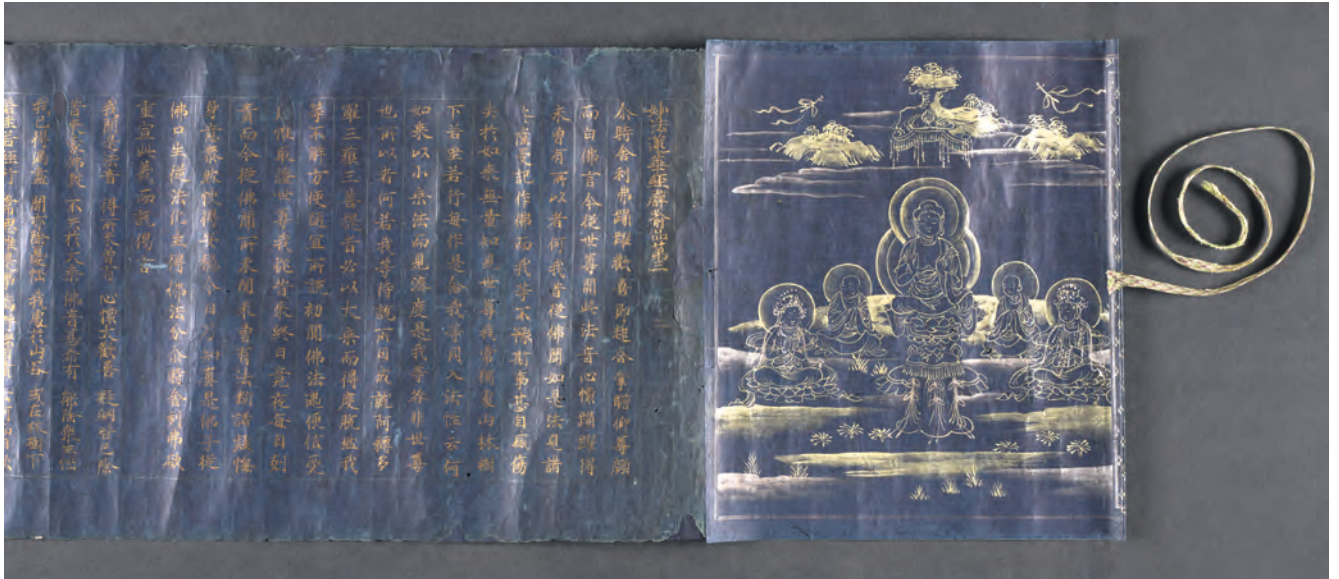 妙法蓮華經譬喻品第三
尒時舍利弗踊躍歡喜即起合掌瞻仰尊顏
而白佛言今從世尊聞此法音心懷踊躍得
未曾有所以者何我昔從佛聞如是法見諸
菩薩受記作佛而我等不豫斯事甚自感傷
失於如來無量知見世尊我常獨處山林樹
下若坐若行每作是念我等同入法性云何
如來以小乘法而見濟度是我等咎非世尊
也所以者何若我等待說所因成就阿耨多
羅三藐三菩提者必以大乘而得度脫然我
等不解方便隨宜所說初聞佛法遇便信受
思惟取證世尊我從昔來終日竟夜每自剋
責而今從佛聞所未聞未曾有法斷諸疑悔
身意泰然快得安隱今日乃知真是佛子從
佛口生從法化生得佛法分尒時舍利弗欲
重宣此義而說偈言
我聞是法音 得所未曾有 心懷大歡喜 疑網皆已除
昔來蒙佛教 不失於大乘 佛音甚希有 能除衆生惱
我已得漏盡 聞亦除憂惱 我處於山谷 或在林樹下